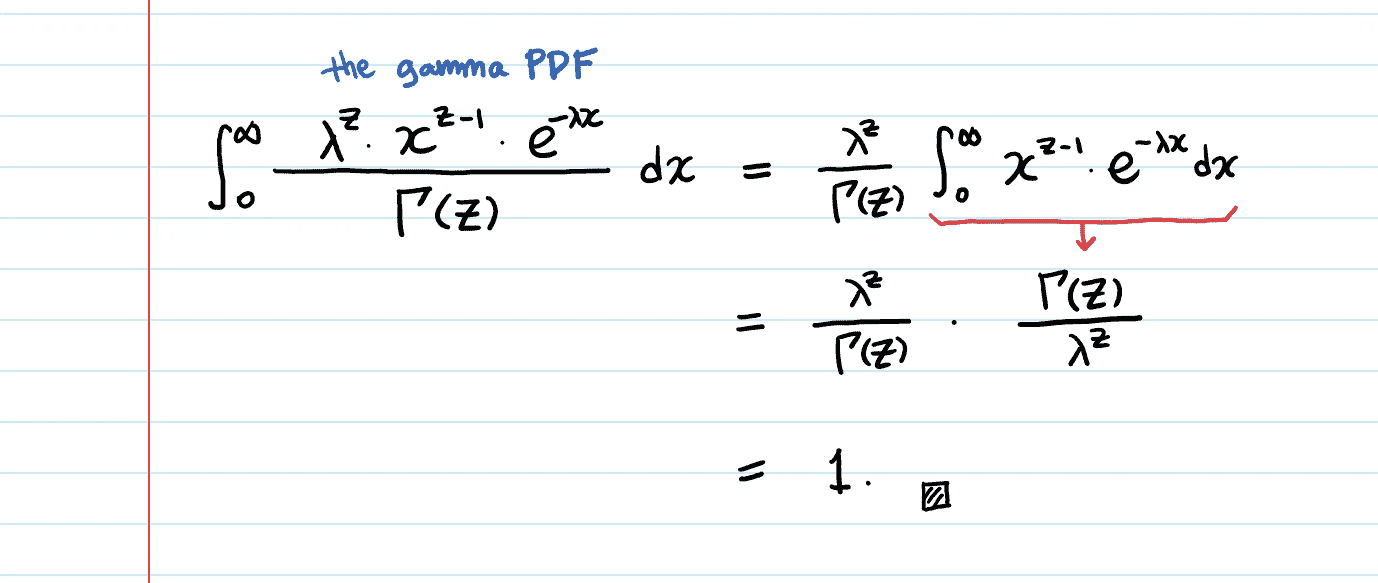 the gamma PDF
∫₀^∞ (λ^z · x^(z-1) · e^(-λx)) / Γ(z) dx = λ^z / Γ(z) ∫₀^∞ x^(z-1) · e^(-λx) dx
= λ^z / Γ(z) · Γ(z) / λ^z
= 1.